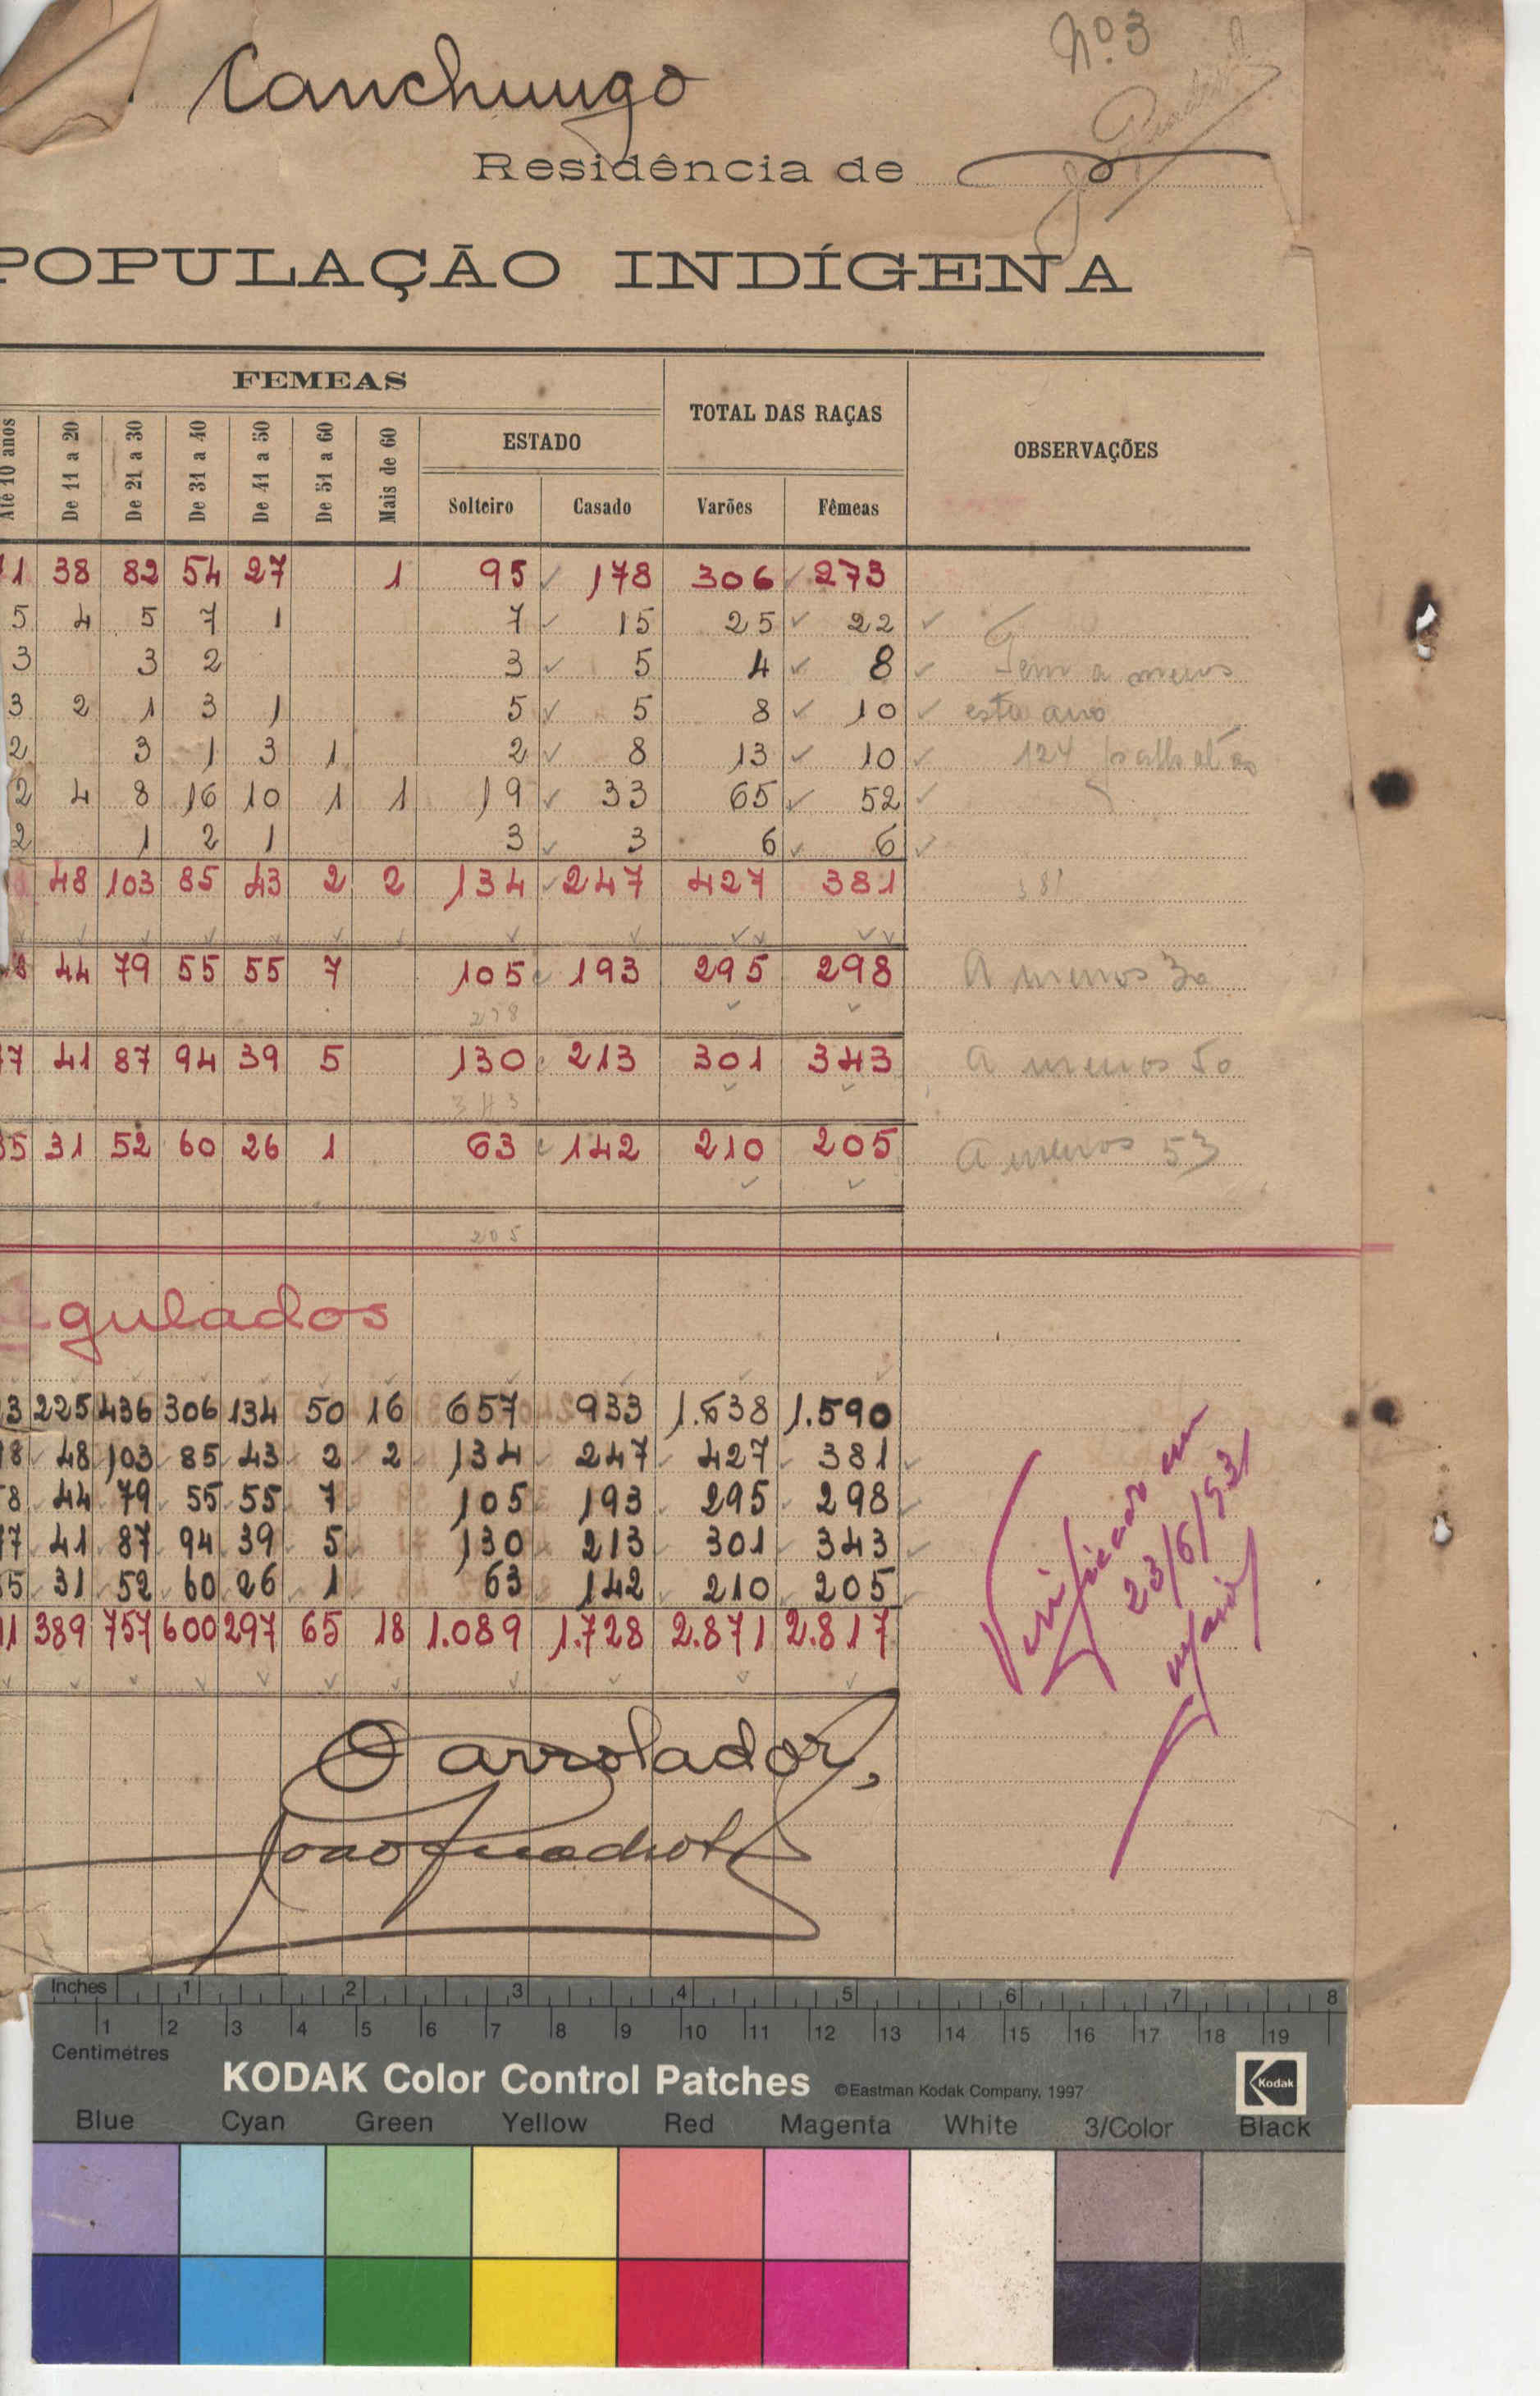 Nº 3
Canchungo
Residência de
POPULAÇÃO INDÍGENA
FEMEAS
TOTAL DAS RAÇAS
OBSERVAÇÕES
Até 10 anos De 11 a 20 De 21 a 30 De 31 a 40 De 41 a 50 De 51 a 60 Mais de 60
ESTADO
Solteiro Casado Varões Fêmeas
1 38 82 54 27 1 95 178 306 273
5 4 5 7 1 7 15 25 22
3 3 2 3 5 4 8 Tem a menos
3 2 1 3 1 5 5 8 10 este ano
2 3 1 3 1 2 8 13 10 124
2 4 8 16 10 1 1 19 33 65 52
2 1 2 1 3 3 6 6
48 103 85 43 2 2 134 247 427 381 381
8 44 79 55 55 7 105 193 295 298 A menos 30
298
7 41 87 94 39 5 130 213 301 343 A menos 50
343
35 31 52 60 26 1 63 142 210 205 A menos 53
205
egulados
3 225 436 306 134 50 16 657 933 1.638 1.590
8 48 103 85 43 2 2 134 247 427 381
8 44 79 55 55 7 105 193 295 298
7 41 87 94 39 5 130 213 301 343
5 31 52 60 26 1 63 142 210 205
1 389 757 600 297 65 18 1.089 1.728 2.871 2.817
Verificado em
23/6/931
O arrolador,
Inches 1 2 3 4 5 6 7 8
1 2 3 4 5 6 7 8 9 10 11 12 13 14 15 16 17 18 19
Centimetres
KODAK Color Control Patches ©Eastman Kodak Company, 1997 Kodak
Blue Cyan Green Yellow Red Magenta White 3/Color Black